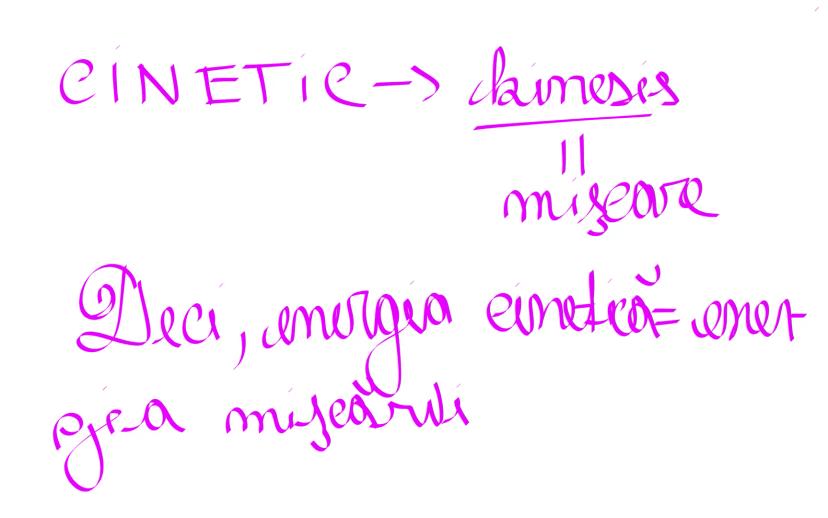 CINETIC -> kinesis
=
mișcare
Deci, energia cinetică = ener
gia mișcării